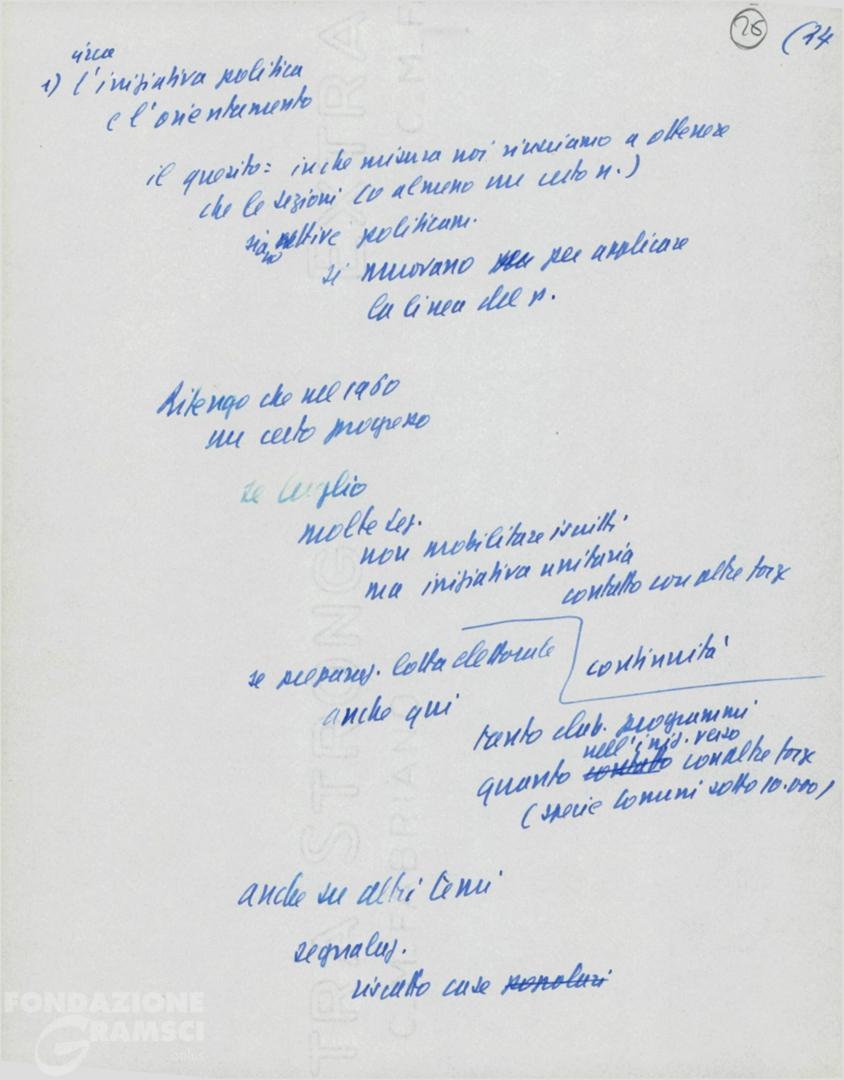 26 (24
circa
1) l'iniziativa politica
e l'orientamento
il quesito: in che misura noi riusciamo a ottenere
che le sezioni (o almeno un certo n.)
siano attive politicam.
si muovano per applicare
la linea del p.
Ritengo che nel 1960
un certo progresso
se luglio
molte sez.
non mobilitare iscritti
ma iniziativa unitaria
contatto con altre forze
se preparaz. lotta elettorale
continuità
anche qui
tanto elab. programmi
nell'iniz. verso
quanto contatto con altre forze
(specie Comuni sotto 10.000)
anche su altri temi
segnalaz.
riscatto case popolari
FONDAZIONE
GRAMSCI
onlus
EXTRA STRONG
C.M. FABRIANO